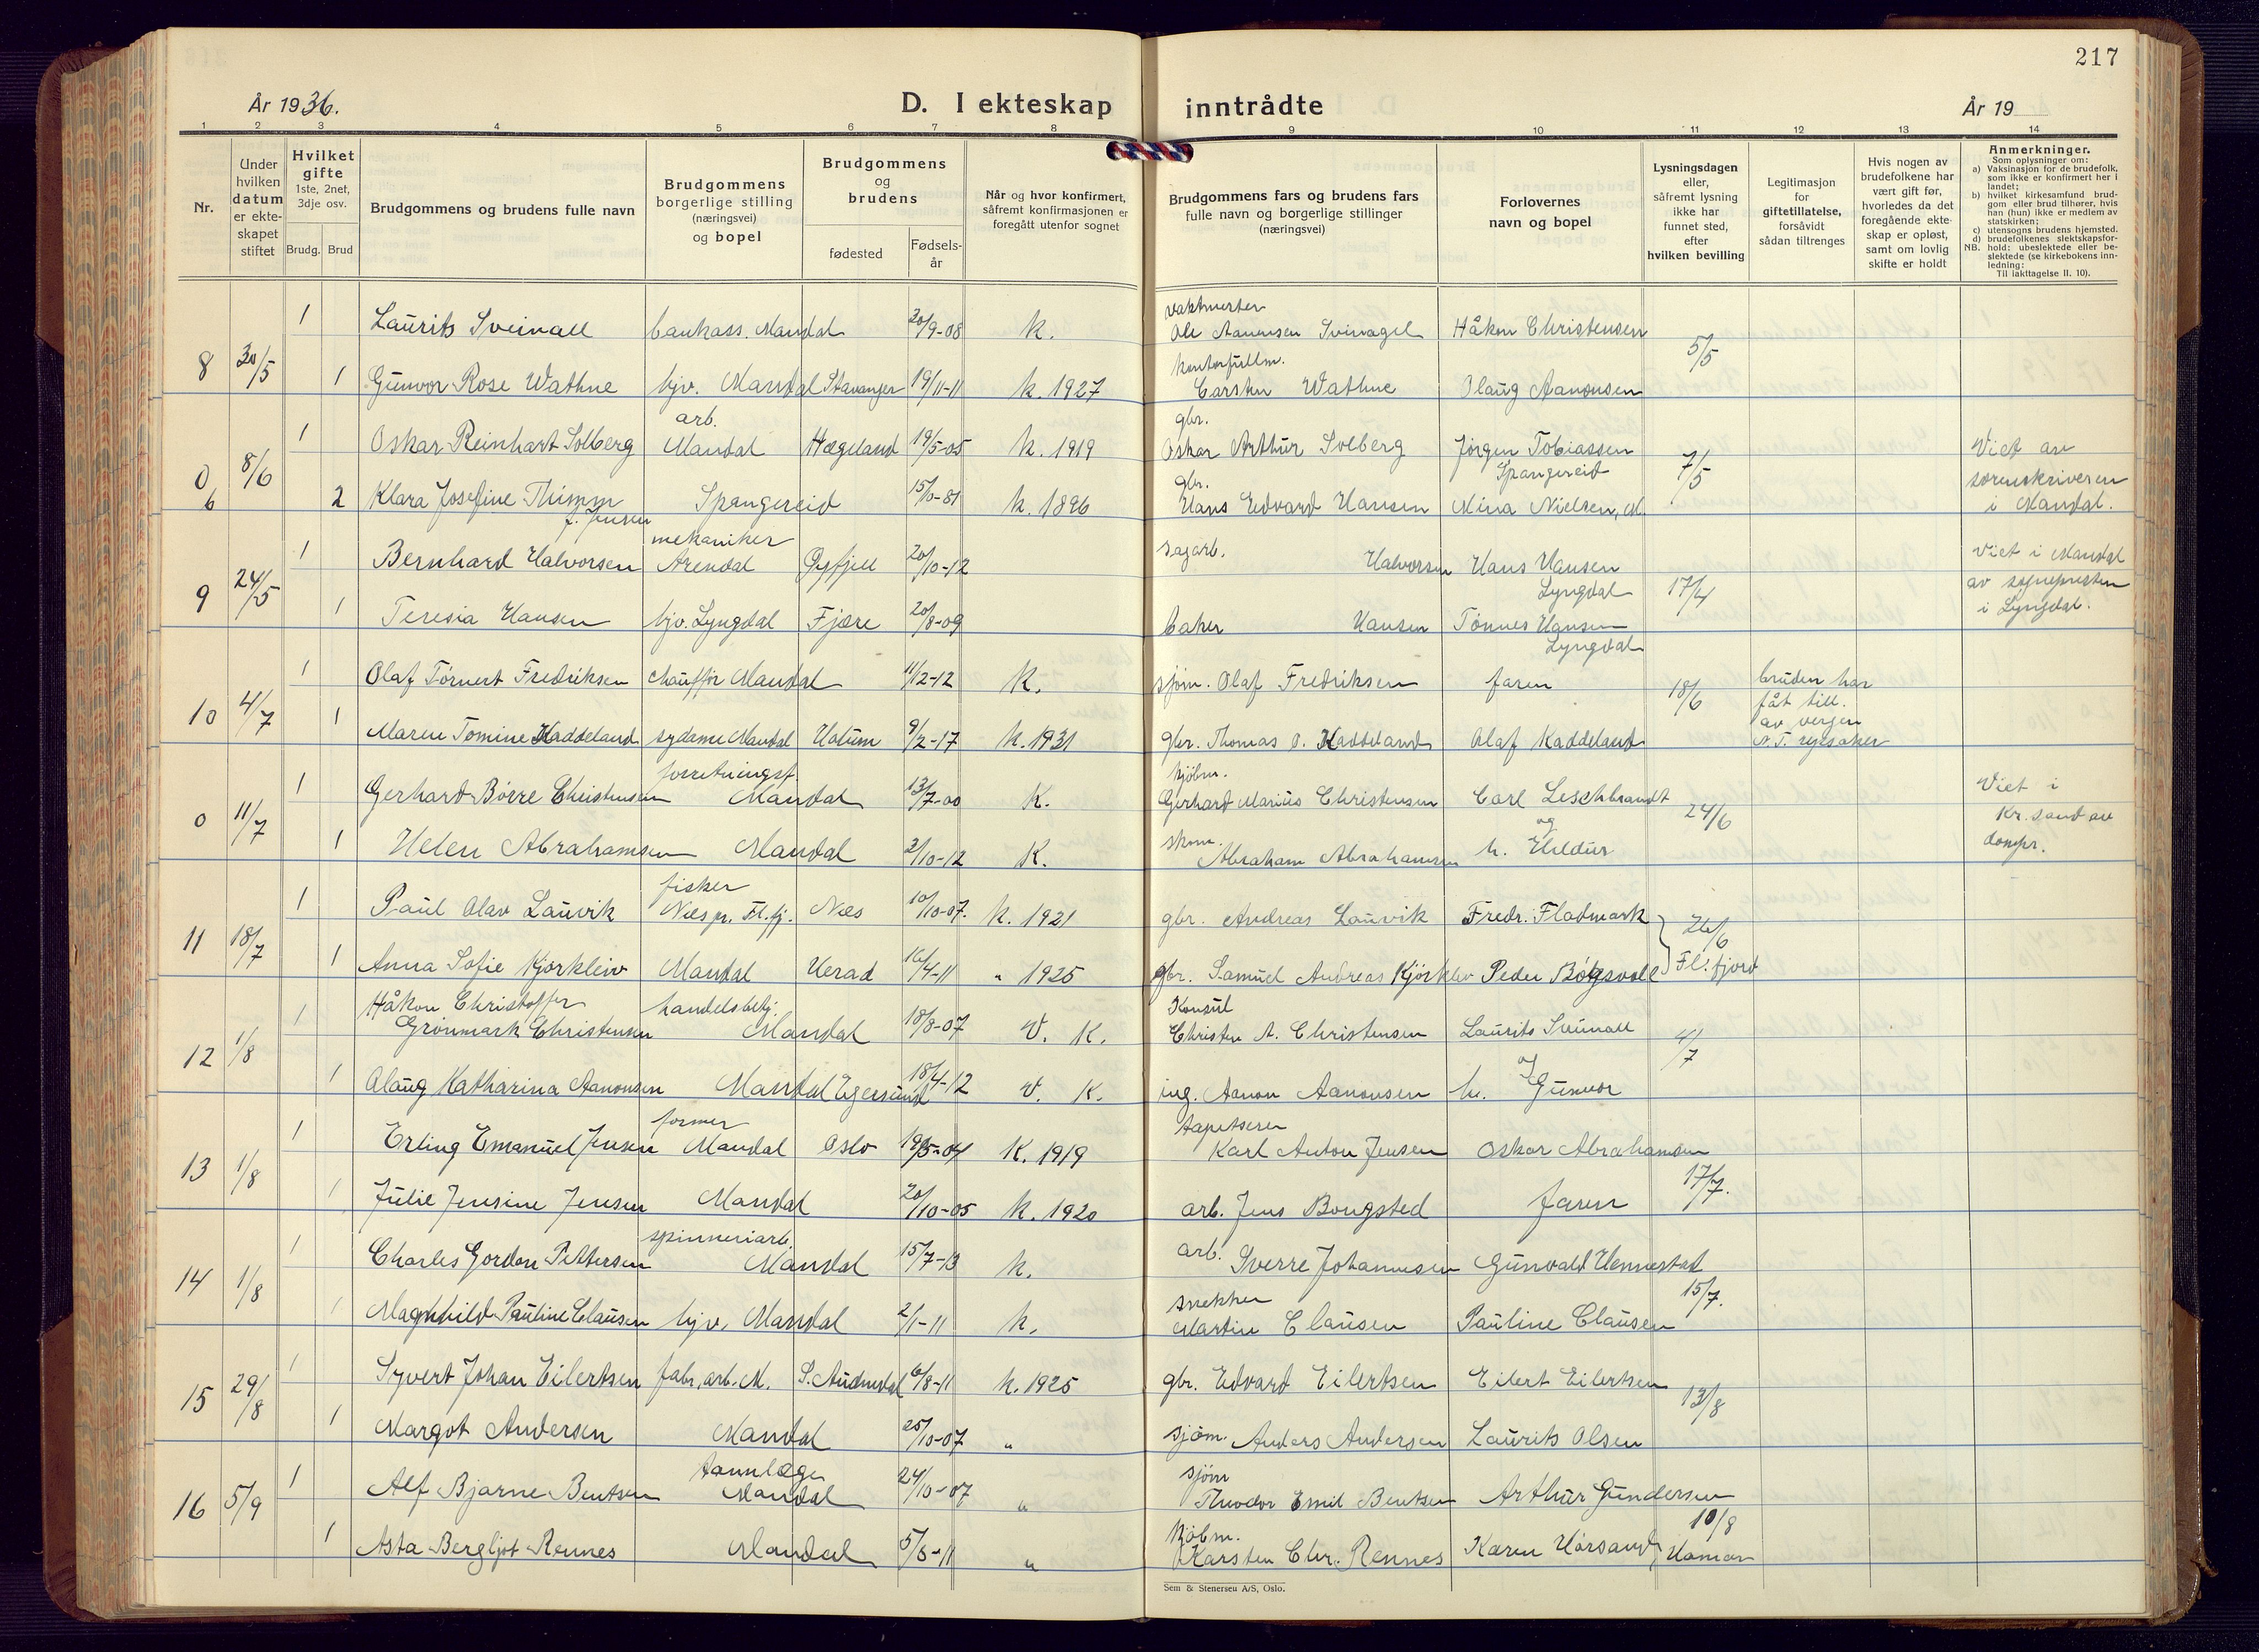 217
År 1936.
D. I ekteskap inntrådte
År 19
1 2 3 4 5 6 7 8 9 10 11 12 13 14
Nr.
Under
hvilken
datum
er ekte-
skapet
stiftet
Hvilket
gifte
1ste, 2net,
3dje osv.
Brudg. Brud
Brudgommens og brudens fulle navn
Brudgommens
borgerlige stilling
(næringsvei)
og bopel
Brudgommens
og
brudens
fødested
Fødsels-
år
Når og hvor konfirmert,
såfremt konfirmasjonen er
foregått utenfor sognet
Brudgommens fars og brudens fars
fulle navn og borgerlige stillinger
(næringsvei)
Forlovernes
navn og bopel
Lysningsdagen
eller,
såfremt lysning
ikke har
funnet sted,
efter
hvilken bevilling
Legitimasjon
for
giftetillatelse,
forsåvidt
sådan tiltrenges
Hvis nogen av
brudefolkene har
vært gift før,
hvorledes da det
foregående ekte-
skap er opløst,
samt om lovlig
skifte er holdt
Anmerkninger.
Som oplysninger om:
a) Vaksinasjon for de brudefolk,
som ikke er konfirmert her i
landet;
b) hvilket kirkesamfund brud-
gom eller brud tilhører, hvis
han (hun) ikke er medlem av
statskirken;
c) utensogns brudens hjemsted.
d) brudefolkenes slektskapsfor-
NB. hold: ubeslektede eller be-
slektede (se kirkebokens inn-
ledning:
Til iakttagelse II. 10).
vaktmester
1 Laurits Svinall bankass. Mandal 20/9-08 k. Ole Aanensen Svinagel Håkon Christensen
8 30/5 5/5
kontorfullm.
1 Gunvor Rose Wathne hjv. Mandal Stavanger 19/11-11 k. 1927 Carsten Wathne Olaug Aanonsen
arb. gbr.
1 Oskar Reinhart Solberg Mandal Hægeland 19/5-05 k. 1919 Oskar Arthur Solberg Jørgen Tobiassen
Spangereid
0 6 8/6 7/5 Viet av
sorenskriveren
i Mandal.
gbr.
2 Klara Josefine Thimm Spangereid k. 1896 Hans Edvard Hansen Mina Nielsen, M.
f. Jensen
mekaniker sagarb.
1 Bernhard Halvorsen Arendal 20/10-12 Halvorsen Hans Hansen
Lyngdal
9 24/5 17/4 Viet i Mandal
av sognepresten
i Lyngdal.
1 Teresia Hansen hjv. Lyngdal Fjære 20/8-09 baker Hansen Tønnes Hansen
Lyngdal
1 Olaf Tørnert Fredriksen chauffør Mandal 11/2-12 k. sjøm. Olaf Fredriksen faren
10 4/7 18/6 bruden har
fåt till.
av vergen
1 Maren Tomine Haddeland sydame Mandal Holum 9/2-17 k. 1931 gbr. Thomas O. Haddeland Olaf Haddeland
forretningsf. kjøbm.
1 Gerhard Børre Christensen Mandal 13/7-00 K. Gerhard Marius Christensen Carl Leschbrandt
og
0 11/7 24/6 Viet i
Kr.sand av
dompr.
skom.
1 Helen Abrahamsen Mandal 2/10-12 K. Abraham Abrahamsen h. Hildur
fisker
1 Paul Olav Lauvik Nes pr. Fl.fj. Nes 10/10-07. k. 1921 gbr. Andreas Lauvik Fredr. Fladmark
11 18/7 26/6
Fl.fjord
1 Anna Sofie Kjørkleiv Mandal Herad 16/4-11 " 1925 gbr. Samuel Andreas Kjørkleiv Peder Bøgsvoll
Håkon Christoffer handelsbetj. Konsul
1 Grønmark Christensen Mandal 18/8-07 V. K. Christen A. Christensen Laurits Svinall
og
12 1/8 4/7
1 Olaug Katharina Aanonsen Mandal Egersund 18/4-12 V. K. ing. Aanon Aanonsen h. Gunvor
former tapetserer
1 Erling Emanuel Jensen Mandal Oslo 19/5-04 K. 1919 Karl Anton Jensen Oskar Abrahamsen
13 1/8 17/7.
1 Julie Jensine Jensen Mandal 20/10-05 k. 1920 arb. Jens Bongsted faren
spinneriarb. arb.
1 Charles Gordon Pettersen Mandal 15/7-13 k. Sverre Johannesen Gunvald Hennestad
14 1/8 15/7.
snekker
1 Magnhild Pauline Clausen hjv. Mandal 2/1-11 k. Martin Clausen Pauline Clausen
1 Syvert Johan Eilertsen fabr.arb. M. S. Audnedal 6/8-11 k. 1925 gbr. Edvard Eilertsen Eilert Eilertsen
15 29/8 13/8
1 Margot Andersen Mandal 25/10-07 " sjøm. Anders Andersen Laurits Olsen
tannlæge sjøm
1 Alf Bjarne Bentsen Mandal 24/10-07 " Theodor Emil Bentsen Arthur Gundersen
16 5/9 10/8
kjøbm.
1 Asta Bergljot Rennes Mandal " Karsten Chr. Rennes Karen Hørsand, Hamar
Sem & Stenersen A/S, Oslo.